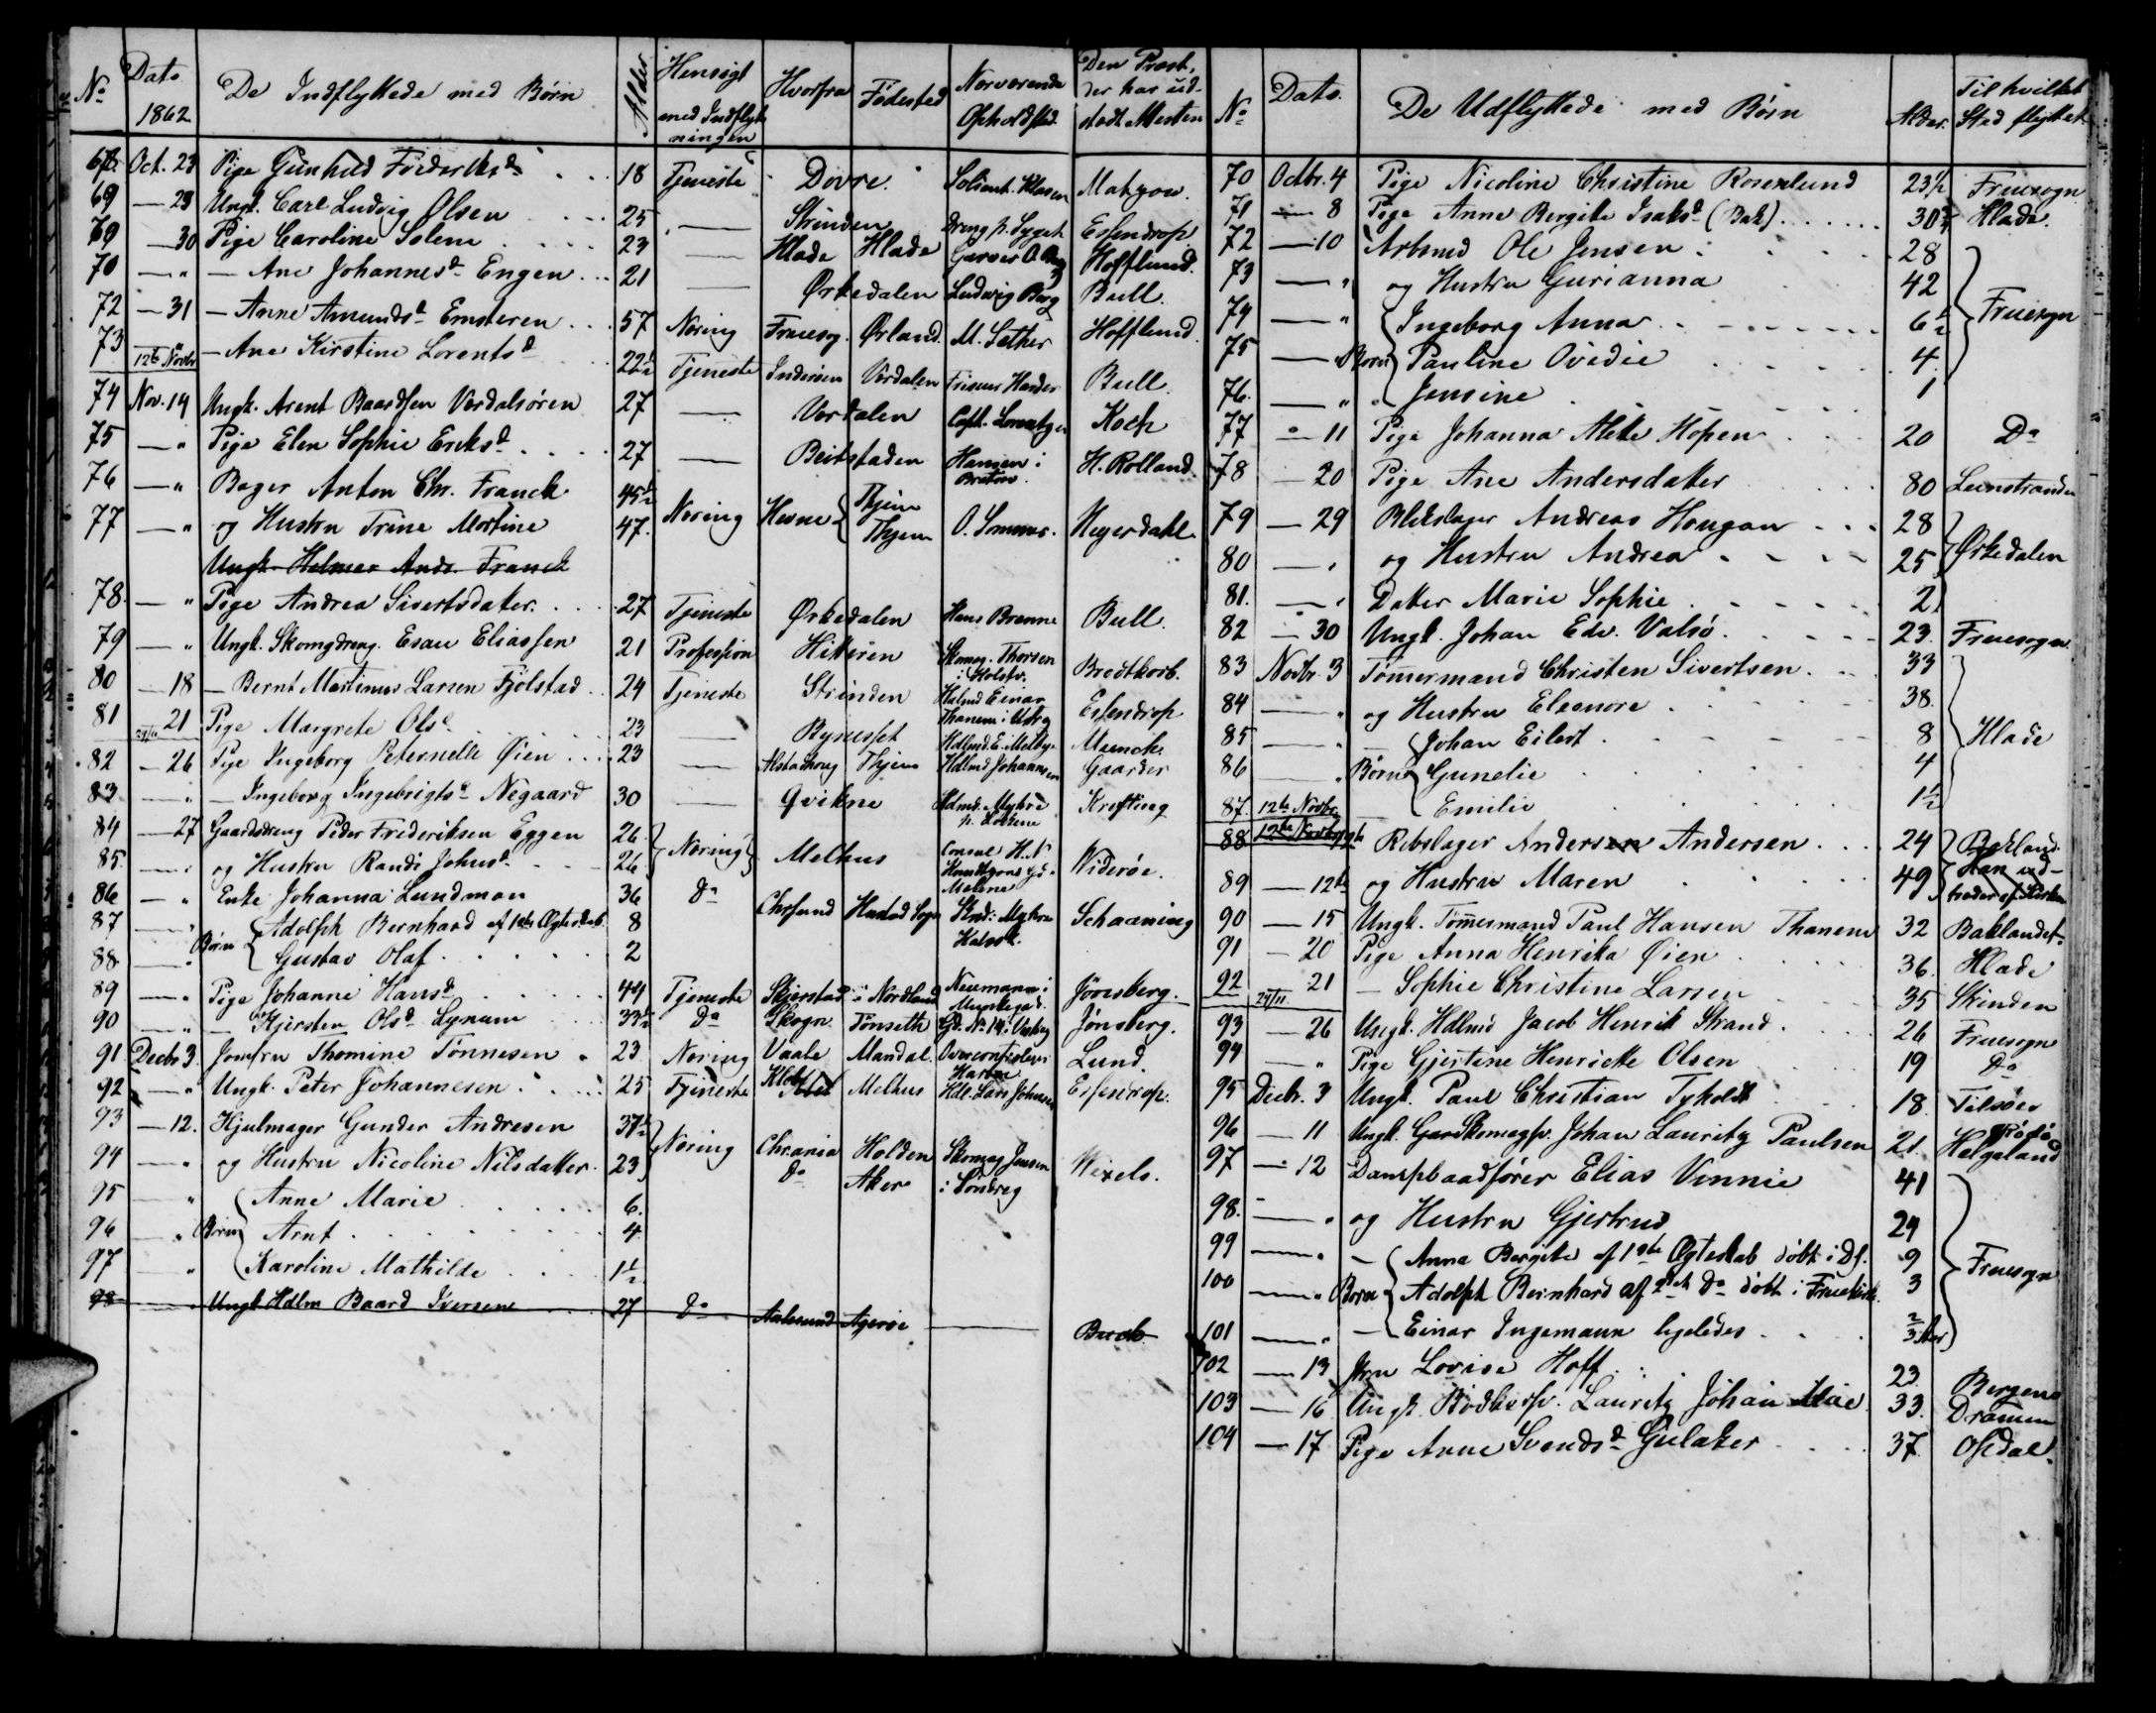 No Dato 1862 De Indflyttede med Børn Alder Hensigt med Indflytningen Hvorfra Fødested Nærværende Opholdssted Den Præst, der har udstedt Attesten
68 Oct. 23 Pige Gunhild 18 Tjeneste Dovre
69 — 23 Ungk. Carl Ludvig Olsen 25 — Strinden Essendrop
69 — 30 Pige Caroline Solem 23 — Hlade Hlade Garver O. Hofflund.
70 — " — Ane Johannesd. Engen 21 — Ørkedalen Ludvig Berg Bull.
72 — 31 — Anne Amundsd. 57 Næring Fruesog. Ørland. M. Sæther Hofflund.
73 12te Novbr — Ane Kirstine Lorentsd. 22½ Tjeneste Inderøen Værdalen Bull.
74 Nov. 14 Ungk. Arent Baardsen Værdalsøren 27 — Værdalen Capt. Lorentzen Koch
75 — " Pige Elen Sophie Eriksd. 27 — Beitstaden Hansen i H. Rolland.
76 — " Bager Anton Chr. Franck 45½ Næring Hevne Thjem
77 — " og Hustru Trine Martine 47. Thjem O. Heyerdahl.
Ungk. Helmer Andr. Franck
78. — " Pige Andrea Sivertsdatter. 27 Tjeneste Ørkedalen Hans Brænne Bull.
79 — " Ungk. Skomgdreng. Esau Eliassen 21 Profession Hitteren Skomag. Thorsen Bredtkorb.
80 — 18 — Bernt Martinus Larsen Fjølstad 24 Tjeneste Strinden Essendrop
81 — 21 Pige Margrete Olsd. 23 — Bynesset Munch
82 — 26 Pige Ingeborg Peternelle Øien 23 — Alstahoug Thjem Hdlmd Johannsen Gaarder
83 — " — Ingeborg Ingebrigtsd. Negaard 30 — Qvikne Krefting
84 — 27 Gaardsdreng Peder Frederiksen Eggen 26. Næring Melhus Consul H. Widerøe.
85. — " og Hustru Randi Johnsd. 26
86 — " Enke Johanna Lundman 36 Do Chrsund Hustad Sogn Schaaning
87 — " Børn Adolph Bernhard af 1ste Ægteskab. 8
88. — " Gustav Olaf 2
89 — " Pige Johanne Hansd. 44 Tjeneste Skjerstad i Nordland Neumann i Munkegad. Jönsberg.
90 — " — Kjersten Olsd. Lynum 33½ Do Skogn Tönseth Gd. No 14 i Jönsberg.
91 Decbr 3. Jomfru Thomine Tönnesen 23. Næring Vaale Mandal. Lund.
92 — " Ungk. Peter Johannesen 25 Tjeneste Klæbo Melhus Hdl. Lars Johnsen Essendrop.
93 — 12. Hjulmager Gunder Andresen 37½ Næring Chrania Holden Skomag Jensen Wexels.
94 — " og Hustru Nicoline Nilsdatter 23 Do Aker i Søndreg
95 — " Børn Anne Marie 6.
96 — " Arnt 4
97 — " Karoline Mathilde 1½
98 — " Ungk Hdlm Baard Iversen 27 Do Aalesund Agerøe —
No Dato. De Udflyttede med Børn Alder. Til hvilket Sted flyttet
70 Octbr. 4 Pige Nicoline Christine Rosenlund 23½ Fruesogn
71 — 8 Pige Anne Bergite Isaksd. (Bak) 30¾ Hlade.
72 — 10 Arbmd Ole Jensen 28
73 — " og Hustru Gurianna 42 Fruesogn
74 — " Børn Ingeborg Anna 6½
75 — " Pauline Ovidie 4
76. — " Jensine 1
77 — 11 Pige Johanna Alette Hopen 20 Do
78 — 20 Pige Ane Andersdatter 80 Leinstranden
79 — 29 Blikslager Andreas Hougan 28 Ørkedalen
80 — " og Hustru Andrea 25
81. — " Datter Marie Sophie 2
82 — 30 Ungk. Johan Edv. Valsö 23. Fruesogn
83 Novbr. 3 Tömmermand Christen Sivertsen 33
84 — " og Hustru Eleonore 38. Hlade
85 — " Børn Johan Eilert 8
86 — " Gunelie 4
87. 12te Novbr. Emilie 1½
88 12te Novbr. Rebslager Andersen Andersen 24 Bakland
89 — 12te og Hustru Maren 49 Han udtræder af Kirken
90 — 15 Ungk. Tömmermand Paul Hansen Thanem 32 Baklandet.
91 — 20 Pige Anna Henrika Øien 36. Hlade
92 — 21 — Sophie Christine Larsen 35 Strinden
93 — 26 Ungk. Hdlmd Jacob Henrik Strand 26 Fruesogn
94 — " Pige Gjertine Henriette Olsen 19 Do
95 Decbr. 3 Ungk. Paul Christian Tyholdt 18.
96 — 11 Ungk. Johan Lauritz Paulsen 21. Helgeland
97 — 12 Dampbaadfører Elias Vinnie 41
98. — " og Hustru Gjertrud 29
99 — " Børn Anna Bergite af 1ste Ægteskab døbt i Df. 9 Fruesogn
100 — " Adolph Bernhard af 2det Do døbt i Fruekirk. 3
101 — " Einar Ingemann ligeledes ⅔ Aar
102 — 13 Jfru Lovise Hoff 23 Bergen
103 — 16 Ungk. Bødkersv. Lauritz Johan 33. Drammen
104 — 17 Pige Anne Svendsd. Gulaker 37. Opdal.